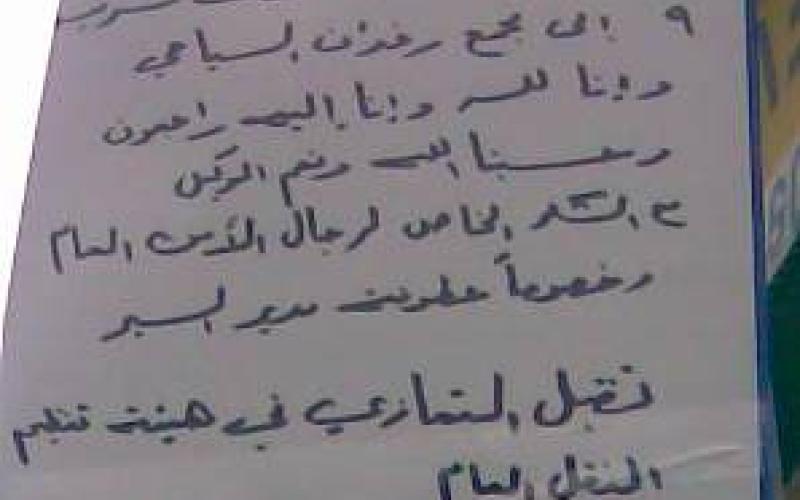 ٩ إلى مجمع رفدان السياحي
وإنا لله وإنا إليه راجعون
وحسبنا الله ونعم الوكيل
ع الشكر الخاص لرجال الأمن العام
وخصوصاً عطوفة مدير السير
نتقبل التعازي في هيئة تنظيم
النقل العام